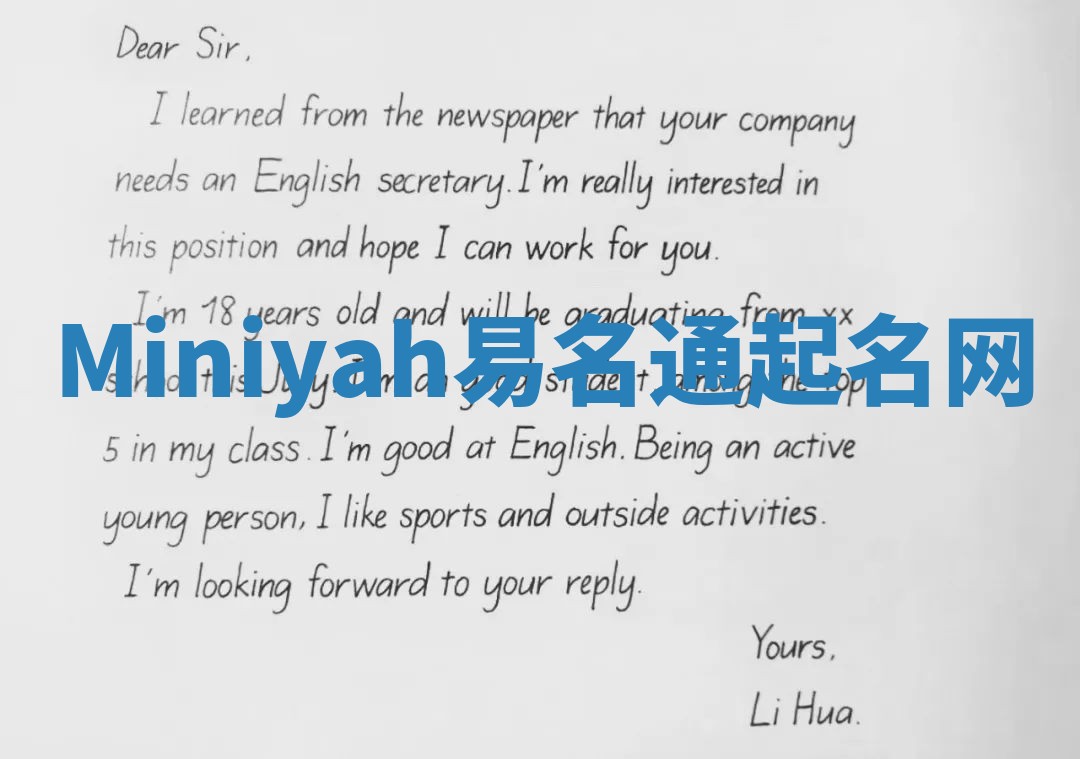 Dear Sir,
I learned from the newspaper that your company
needs an English secretary. I'm really interested in
this position and hope I can work for you.
I'm 18 years old and will be graduating from xx
Miniyah易名通起名网
school this July. I'm a good student, among the top
5 in my class. I'm good at English. Being an active
young person, I like sports and outside activities.
I'm looking forward to your reply.
Yours,
Li Hua.